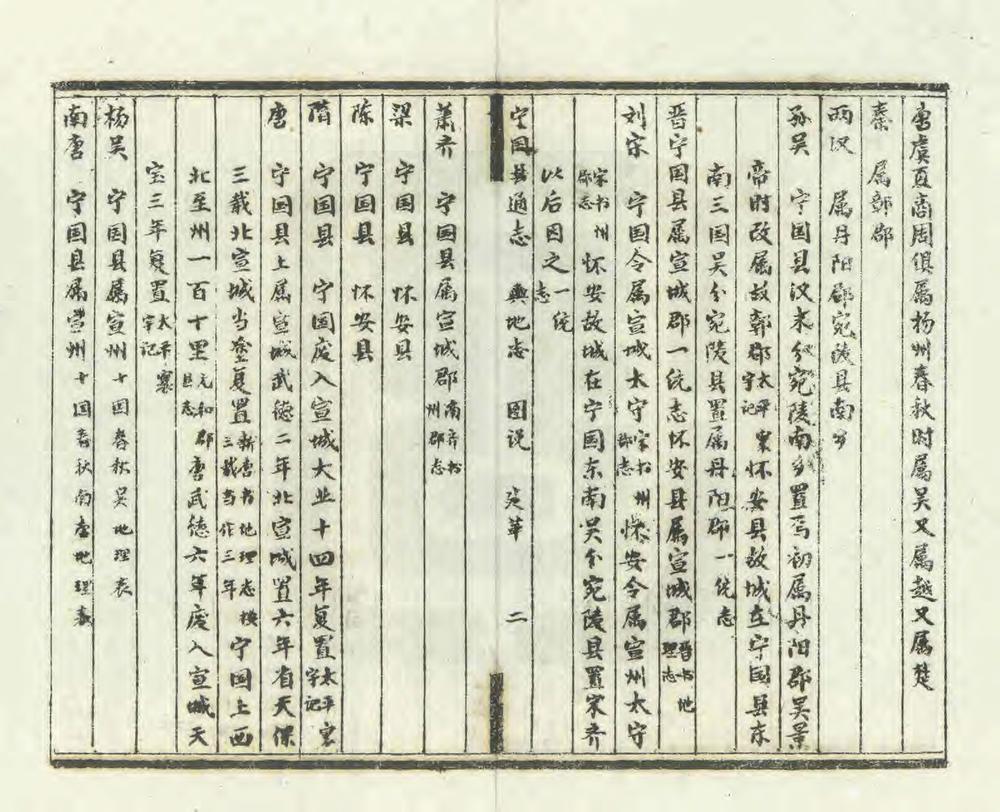 唐虞夏商周俱属杨州春秋时属吴又属越又属楚
秦 属鄣郡
两汉 属丹阳郡宛陵县南乡
孙吴 宁国县汉末分宛陵南乡置焉初属丹阳郡吴景
帝时改属故鄣郡太平寰宇记怀安县故城在宁国县东
南三国吴分宛陵县置属丹阳郡一统志
晋宁国县属宣城郡一统志怀安县属宣城郡晋书地理志
刘宋 宁国令属宣城太守宋书州郡志怀安令属宣州太守
宋书州郡志怀安故城在宁国东南吴分宛陵县置宋齐
此后因之一统志
宁国县通志 舆地志 图说 沿革 二
萧齐 宁国县属宣城郡南齐书州郡志
梁 宁国县 怀安县
陈 宁国县 怀安县
隋 宁国县 宁国废入宣城大业十四年复置太平寰宇记
唐 宁国县上属宣城武德二年北宣城置六年省天保
三载北宣城当塗复置新唐书地理志横三载当作三年宁国上西
北至州一百十里元和郡县志唐武德六年废入宣城天
宝三年复置太平寰宇记
杨吴 宁国县属宣州十国春秋吴地理表
南唐 宁国县属宣州十国春秋南唐地理表